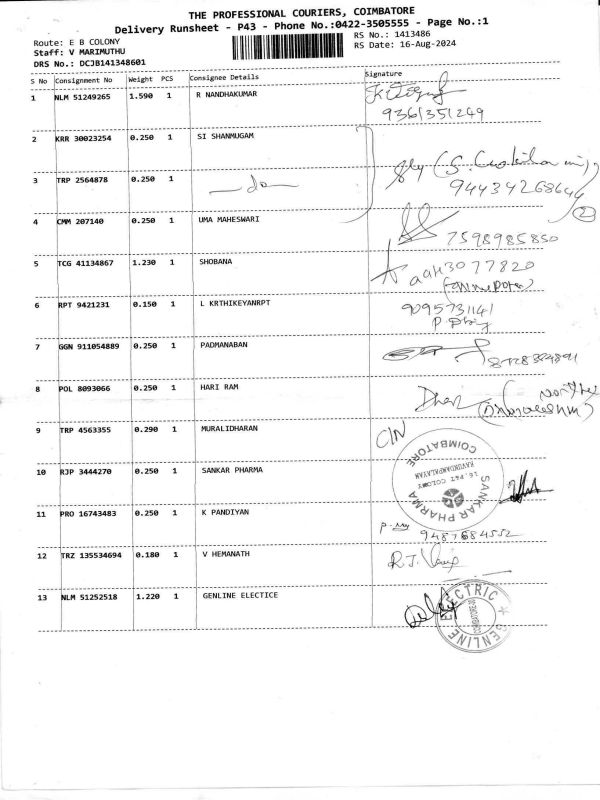 THE PROFESSIONAL COURIERS, COIMBATORE
Delivery Runsheet - P43 - Phone No.:0422-3505555 - Page No.:1
Route: E B COLONY
Staff: V MARIMUTHU
DRS No.: DCJB141348601
RS No.: 1413486
RS Date: 16-Aug-2024
S No Consignment No Weight PCS Consignee Details Signature
1 NLM 51249265 1.590 1 R NANDHAKUMAR
9361351249
2 KRR 30023254 0.250 1 SI SHANMUGAM
3 TRP 2564878 0.250 1 do
9443426864
2
4 CMM 207140 0.250 1 UMA MAHESWARI
7598985850
5 TCG 41134867 1.230 1 SHOBANA
6 RPT 9421231 0.150 1 L KRTHIKEYANRPT
9095731141
7 GGN 911054889 0.250 1 PADMANABAN
8 POL 8093066 0.250 1 HARI RAM
9 TRP 4563355 0.290 1 MURALIDHARAN
C/N
10 RJP 3444270 0.250 1 SANKAR PHARMA
SANKAR PHARMA
COIMBATORE
11 PRO 16743483 0.250 1 K PANDIYAN
9487684552
12 TRZ 135534694 0.180 1 V HEMANATH
13 NLM 51252518 1.220 1 GENLINE ELECTICE
GENLINE ELECTRIC